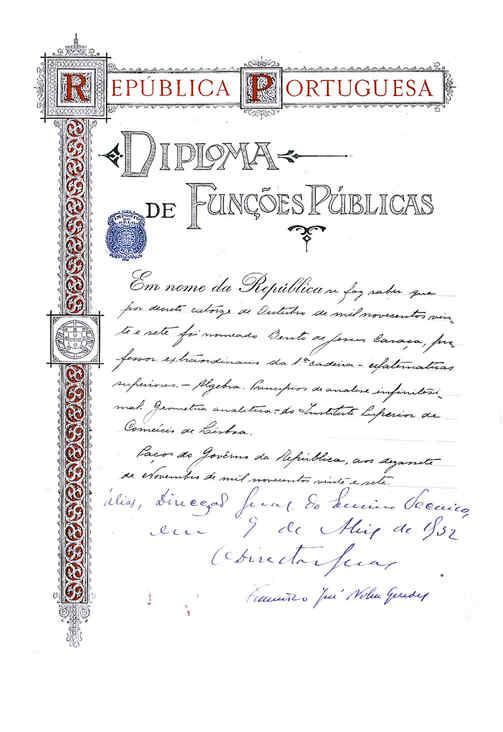 REPÚBLICA PORTUGUESA
DIPLOMA
DE FUNÇÕES PÚBLICAS
Em nome da República se faz saber que
por decreto catorze de Outubro de mil novecentos vin-
te e sete foi nomeado Bento de Jesus Caraça, pro-
fessor extraordinario da 1ª cadeira - Matematicas
superiores. - Algebra. Principios de analise infinitesi-
mal. Geometria analitica - do Instituto Superior de
Comércio de Lisboa.
Paços do Govêrno da República, aos dezanete
de Novembro de mil novecentos vinte e sete
aliás, Direcção Geral do Ensino Tecnico,
em 9 de Abril de 1932
O Director Geral
Francisco José Nobre Guedes